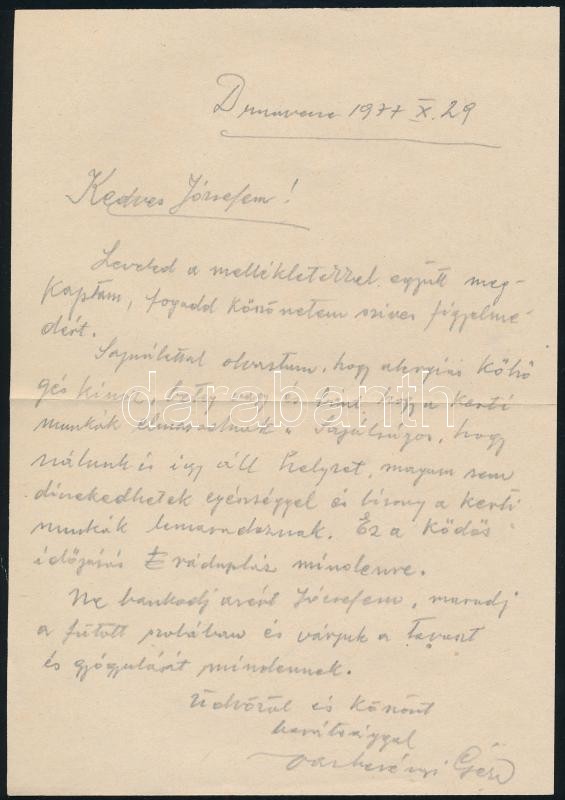 Dunavecse 1977 X. 29
Kedves Józsefem!
Leveled a mellékletekkel együtt meg-
kaptam, fogadd köszönetem szives figyelme-
déért.
Sajnálattal olvastam, hogy annyira köhö
gés kínoz, beteg vagy és fáj, hogy a kerti
munkák elmaradnak. Sajnálságos, hogy
nálunk is így áll helyzet, magam sem
dicsekedhetek egészséggel és bizony a kerti
munkák lemaradoznak. Ez a ködös
időjárás rádupláz mindenre.
Ne bánkodj azért Józsefem, maradj
a fűtött szobában és várjuk a Tavaszt
és gyógyulását mindennek.
Üdvözöl és köszönt
barátsággal
Várkonyi Géza
darabanth